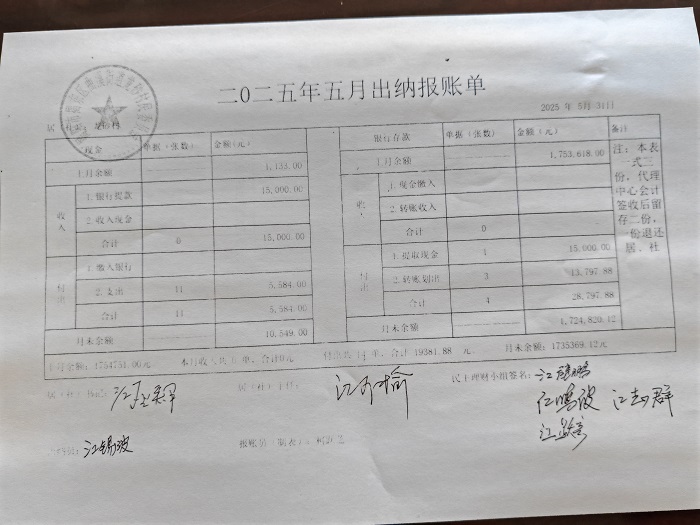 二0二五年五月出纳报账单
2025 年 5月 31日
现金 单据（张数） 金额(元) 银行存款 单据（张数） 金额(元) 备注
上月余额 1,133.00 上月余额 1,753,618.00
收入 1.银行提款 15,000.00 收入 1.现金缴入
2.收入现金 2.转账收入
合计 0 15,000.00 合计 0
付出 1.缴入银行 付出 1.提取现金 1 15,000.00
2.支出 11 5,584.00 2.转账划出 3 13,797.88
合计 11 5,584.00 合计 4 28,797.88
月末余额 10,549.00 月末余额 1,724,820.12
注：本表
一式三
份，代理
中心会计
签收后留
存二份，
一份退还
居、社
上月余额：1754751.00元 本月收入共 0 单，合计0元 单，合计 19381.88 元， 月末余额：1735369.12元
居（社）主任： 民主理财小组签名：
报账员（制表）：
江锡波
江志群